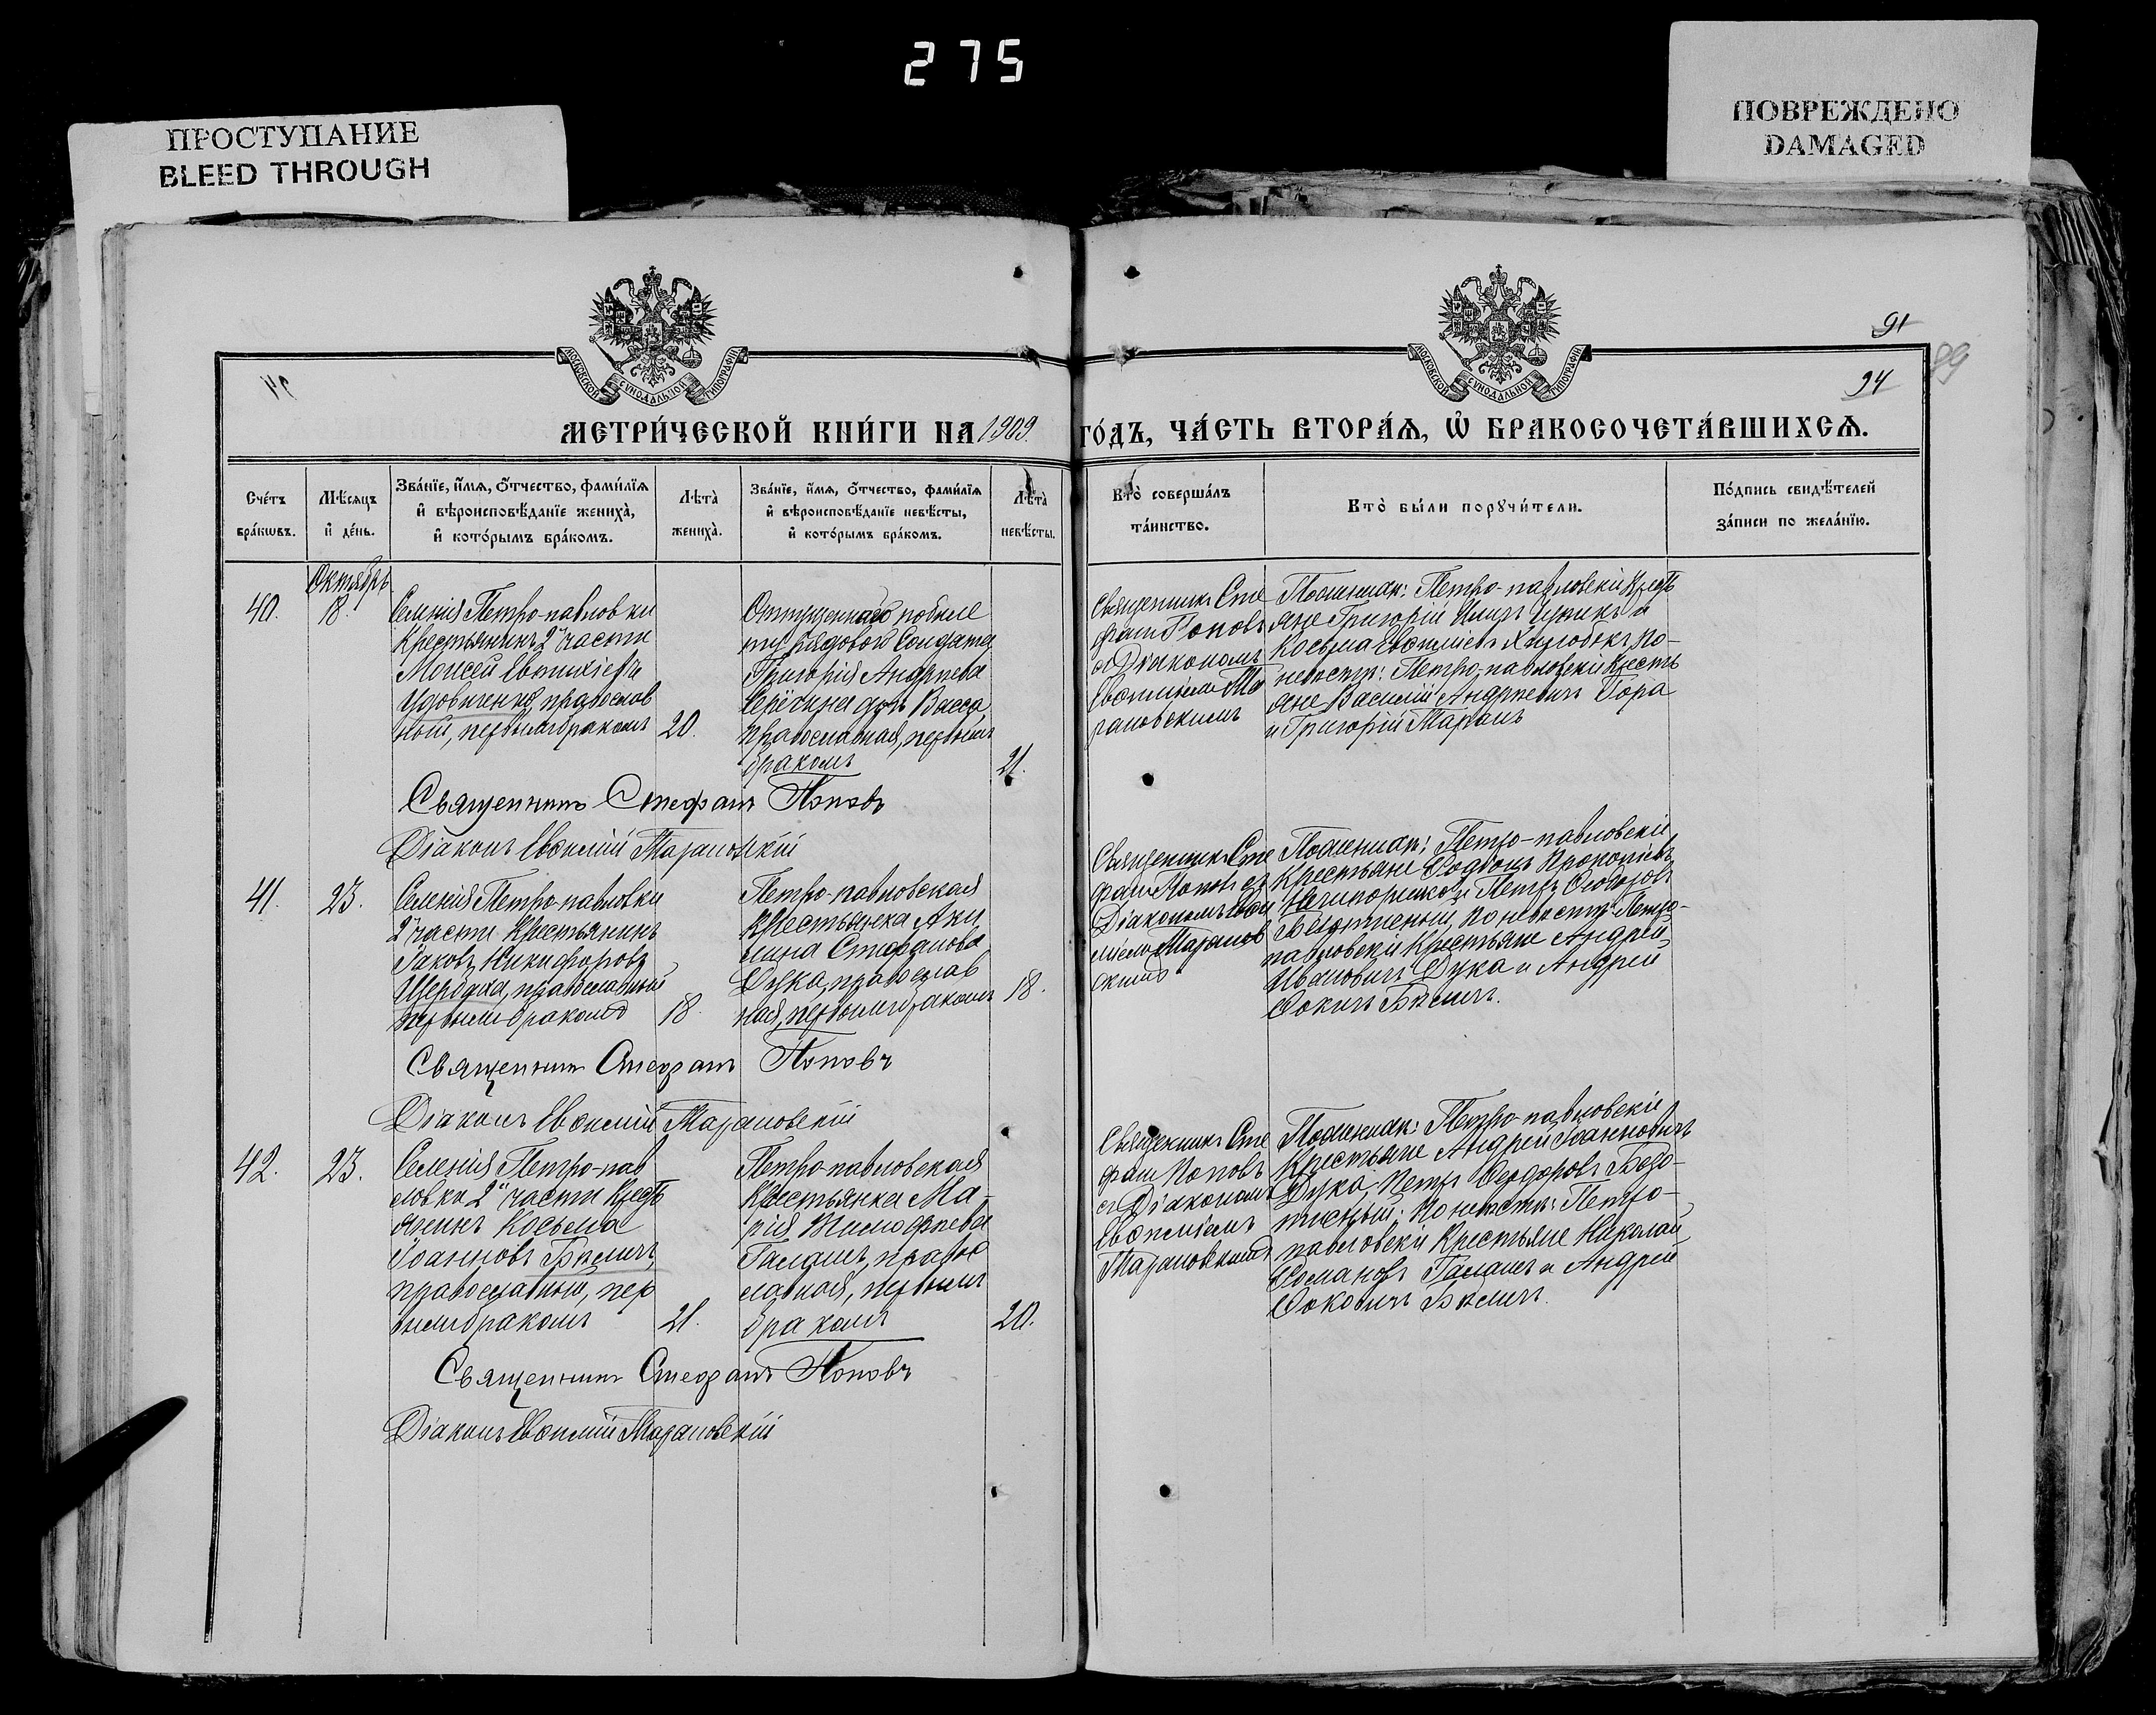 275
ПРОСТУПАНИЕ
BLEED THROUGH
ПОВРЕЖДЕНО
DAMAGED
МОСКОВСКОЙ СѴНОДАЛЬНОЙ ТИПОГРАФІИ
МОСКОВСКОЙ СѴНОДАЛЬНОЙ ТИПОГРАФІИ
91
89
94
МЕТРИ́ЧЕСКОЙ КНИ́ГИ НА 1909 ГО́ДЪ, ЧА́СТЬ ВТОРА́Ѧ, Ѡ҆ БРАКОСОЧЕТА́ВШИХСѦ.
Сче́тъ
бра́кѡвъ.
Мѣ́сяцъ
и҆ де́нь.
Зва́нїе, и҆́мѧ, ѻ҆́тчество, фами́лїѧ
и҆ вѣроисповѣ́данїе жениха̀,
и҆ кото́рымъ бра́комъ.
Лѣ́та
жениха̀.
Зва́нїе, и҆́мѧ, ѻ҆́тчество, фами́лїѧ
и҆ вѣроисповѣ́данїе невѣ́сты,
и҆ кото́рымъ бра́комъ.
Лѣ́та
невѣ́сты.
Кто̀ соверша́лъ
та́инство.
Кто̀ бы́ли порꙋчи́тели.
По́дпись свидѣ́телей
за́писи по жела́нїю.
Октябрь
40.
18.
Селенія Петро-павловки
Крестьянинъ 2й части
Моисей Евтихіевъ
Удовиченко, православ
ный, первымъ бракомъ
20.
Отпущеннаго по биле
ту рядового Солдата
Григорія Андреева
дочь Васса,
православная, первымъ
бракомъ
21.
Священникъ Сте
фанъ Поповъ
съ Діакономъ
Евфиміемъ Ма
рановскимъ
По женихѣ: Петро-павловскіе Кресть
яне Григорій
Косьма Евфиміевъ по
невѣстѣ: Петро-павловскіе Кресть
яне Василій Андреевичъ Гора
и Григорій Таранъ
Священникъ Стефанъ Поповъ
Діаконъ Евфимій Марановскій
41.
23.
Селенія Петро-павловки
2й части Крестьянинъ
Іаковъ Никифоровъ
православный
первымъ бракомъ
18.
Петро-павловская
Крестьянка Аки
лина Стефанова
Дука, православ
ная, первымъ бракомъ
18.
Священникъ Сте
фанъ Поповъ съ
Діакономъ Евфи
міемъ Маранов
скимъ
По женихѣ: Петро-павловскіе
Крестьяне Родіонъ Прокопіевъ
Нечипоренко и Петръ Феодоровъ
По невѣстѣ: Петро-
павловскіе Крестьяне Андрей
Ивановичъ Дука и Андрей
Фокичъ Бѣличъ.
Священникъ Стефанъ Поповъ
Діаконъ Евфимій Марановскій
42.
23.
Селенія Петро-пав
ловки 2й части Кресть
янинъ Косьма
Іоанновъ Бѣличъ,
православный, пер
вымъ бракомъ
21.
Петро-павловская
Крестьянка Ма-
рія Тимофеева
Галашъ, право
славная, первымъ
бракомъ
20.
Священникъ Сте
фанъ Поповъ
съ Діакономъ
Евфиміемъ
Марановскимъ
По женихѣ: Петро-павловскіе
Крестьяне Андрей Іоанновичъ
Дука Петръ Феодоровъ
По невѣстѣ: Петро-
павловскіе Крестьяне Николай
Романовъ Галашъ и Андрей
Фоковичъ Бѣличъ.
Священникъ Стефанъ Поповъ
Діаконъ Евфимій Марановскій